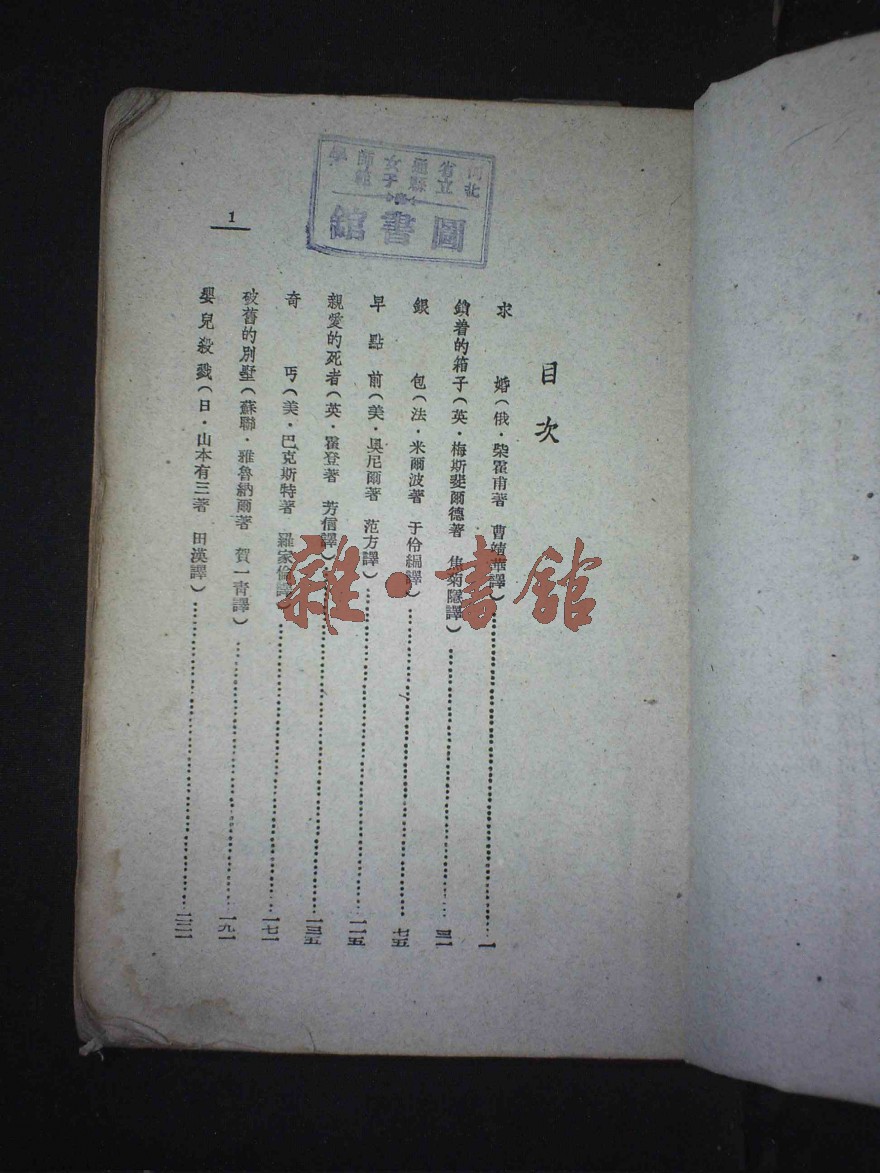 河北省立通縣女子師範學
圖書館
1
目次
求婚(俄・柴霍甫著 曹靖華譯)……一
鎖着的箱子(英・梅斯斐爾德著 焦菊隱譯)……三一
銀包(法・米爾波著 于伶編譯)……七五
早點前(美・奧尼爾著 范方譯)……一一五
親愛的死者(英・霍登著 芳信譯)……一三五
奇丐(美・巴克斯特著 羅家倫譯)……一七一
破舊的別墅(蘇聯・雅魯納爾著 賀一青譯)……一九一
嬰兒殺戮(日・山本有三著 田漢譯)……
雜・書館